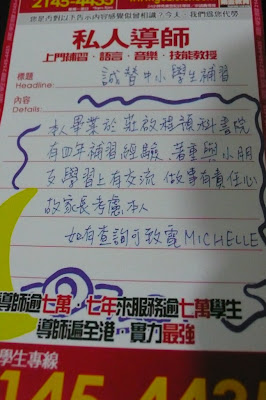 2145-4435
私人導師
上門補習‧語言‧音樂‧技能教授
標題
Headline:
誠替中小學生補習
內容
Details:
本人畢業於莊啟程預科書院
有四年補習經驗 著重與小朋
友學習上有交流 做事有責任心
故家長考慮本人
如有查詢可致電 MICHELLE
導師逾七萬‧七年來服務逾七萬學生
導師遍全港‧實力最強
學生專線
2145-4435